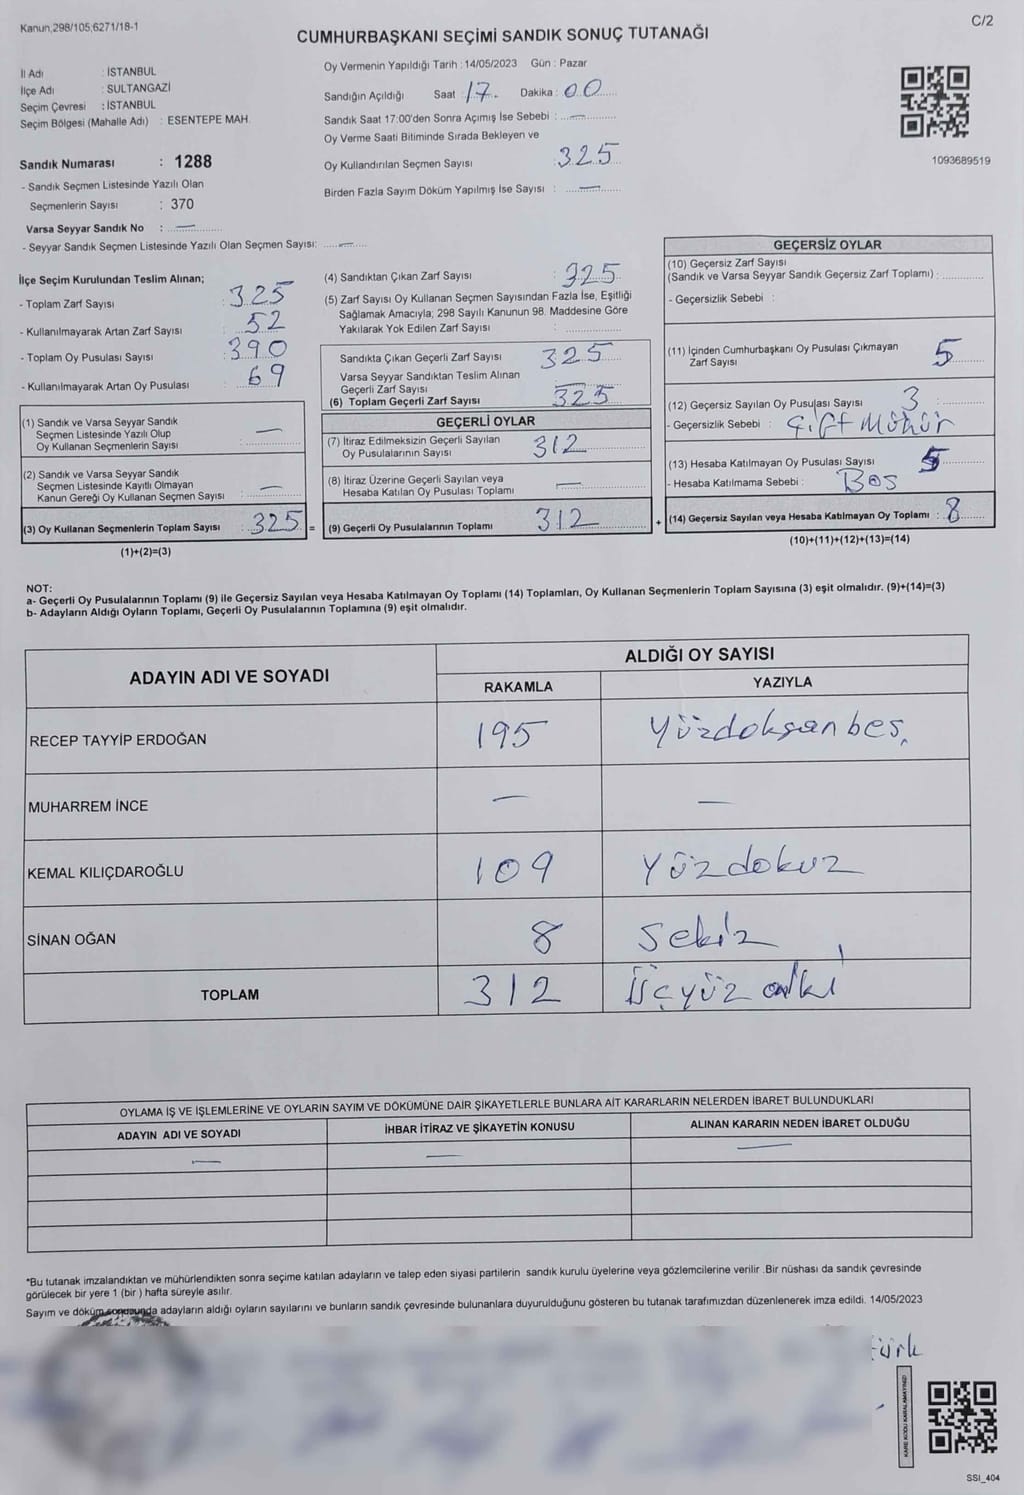 Kanun,298/105,6271/18-1
C/2
CUMHURBAŞKANI SEÇİMİ SANDIK SONUÇ TUTANAĞI
İl Adı : İSTANBUL
İlçe Adı : SULTANGAZİ
Seçim Çevresi : İSTANBUL
Seçim Bölgesi (Mahalle Adı) : ESENTEPE MAH.
Sandık Numarası : 1288
- Sandık Seçmen Listesinde Yazılı Olan
Seçmenlerin Sayısı : 370
Varsa Seyyar Sandık No : —
- Seyyar Sandık Seçmen Listesinde Yazılı Olan Seçmen Sayısı: —
Oy Vermenin Yapıldığı Tarih : 14/05/2023 Gün : Pazar
Sandığın Açıldığı Saat : 17. Dakika : 00
Sandık Saat 17:00'den Sonra Açımış İse Sebebi : —
Oy Verme Saati Bitiminde Sırada Bekleyen ve
Oy Kullandırılan Seçmen Sayısı : 325
Birden Fazla Sayım Döküm Yapılmış İse Sayısı : —
1093689519
İlçe Seçim Kurulundan Teslim Alınan;
- Toplam Zarf Sayısı : 325
- Kullanılmayarak Artan Zarf Sayısı : 52
- Toplam Oy Pusulası Sayısı : 390
- Kullanılmayarak Artan Oy Pusulası : 69
(1) Sandık ve Varsa Seyyar Sandık
Seçmen Listesinde Yazılı Olup
Oy Kullanan Seçmenlerin Sayısı : —
(2) Sandık ve Varsa Seyyar Sandık
Seçmen Listesinde Kayıtlı Olmayan
Kanun Gereği Oy Kullanan Seçmen Sayısı : —
(3) Oy Kullanan Seçmenlerin Toplam Sayısı : 325 =
(1)+(2)=(3)
(4) Sandıktan Çıkan Zarf Sayısı : 325
(5) Zarf Sayısı Oy Kullanan Seçmen Sayısından Fazla İse, Eşitliği
Sağlamak Amacıyla; 298 Sayılı Kanunun 98. Maddesine Göre
Yakılarak Yok Edilen Zarf Sayısı :
Sandıkta Çıkan Geçerli Zarf Sayısı : 325
Varsa Seyyar Sandıktan Teslim Alınan
Geçerli Zarf Sayısı : —
(6) Toplam Geçerli Zarf Sayısı : 325
GEÇERLİ OYLAR
(7) İtiraz Edilmeksizin Geçerli Sayılan
Oy Pusulalarının Sayısı : 312
(8) İtiraz Üzerine Geçerli Sayılan veya
Hesaba Katılan Oy Pusulası Toplamı : —
(9) Geçerli Oy Pusulalarının Toplamı : 312 +
GEÇERSİZ OYLAR
(10) Geçersiz Zarf Sayısı
(Sandık ve Varsa Seyyar Sandık Geçersiz Zarf Toplamı) :
- Geçersizlik Sebebi :
(11) İçinden Cumhurbaşkanı Oy Pusulası Çıkmayan
Zarf Sayısı : 5
(12) Geçersiz Sayılan Oy Pusulası Sayısı : 3
- Geçersizlik Sebebi : Çift Mühür
(13) Hesaba Katılmayan Oy Pusulası Sayısı : 5
- Hesaba Katılmama Sebebi : Boş
(14) Geçersiz Sayılan veya Hesaba Katılmayan Oy Toplamı : 8
(10)+(11)+(12)+(13)=(14)
NOT:
a- Geçerli Oy Pusulalarının Toplamı (9) ile Geçersiz Sayılan veya Hesaba Katılmayan Oy Toplamı (14) Toplamları, Oy Kullanan Seçmenlerin Toplam Sayısına (3) eşit olmalıdır. (9)+(14)=(3)
b- Adayların Aldığı Oyların Toplamı, Geçerli Oy Pusulalarının Toplamına (9) eşit olmalıdır.
ADAYIN ADI VE SOYADI
ALDIĞI OY SAYISI
RAKAMLA YAZIYLA
RECEP TAYYİP ERDOĞAN 195 Yüzdoksanbeş
MUHARREM İNCE — —
KEMAL KILIÇDAROĞLU 109 Yüzdokuz
SİNAN OĞAN 8 Sekiz
TOPLAM 312 Üçyüz
OYLAMA İŞ VE İŞLEMLERİNE VE OYLARIN SAYIM VE DÖKÜMÜNE DAİR ŞİKAYETLERLE BUNLARA AİT KARARLARIN NELERDEN İBARET BULUNDUKLARI
ADAYIN ADI VE SOYADI İHBAR İTİRAZ VE ŞİKAYETİN KONUSU ALINAN KARARIN NEDEN İBARET OLDUĞU
— — —
*Bu tutanak imzalandıktan ve mühürlendikten sonra seçime katılan adayların ve talep eden siyasi partilerin sandık kurulu üyelerine veya gözlemcilerine verilir .Bir nüshası da sandık çevresinde
görülecek bir yere 1 (bir ) hafta süreyle asılır.
Sayım ve döküm sonucunda adayların aldığı oyların sayılarını ve bunların sandık çevresinde bulunanlara duyurulduğunu gösteren bu tutanak tarafımızdan düzenlenerek imza edildi. 14/05/2023
KARE KODU KARALAMAYINIZ!
SSI_404